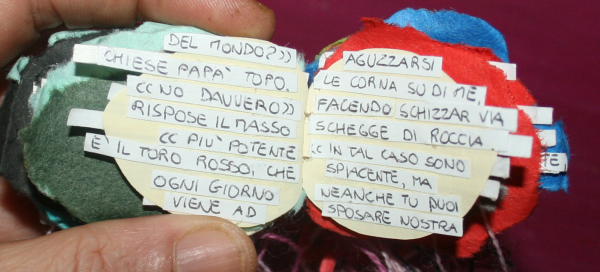 DEL MONDO?))
CHIESE PAPA' TOPO.
<< NO DAVVERO>>
RISPOSE IL MASSO
<< PIU' POTENTE
E' IL TORO ROSSO, CHE
OGNI GIORNO
VIENE AD
AGUZZARSI
LE CORNA SU DI ME,
FACENDO SCHIZZAR VIA
SCHEGGE DI ROCCIA
<< IN TAL CASO SONO
SPIACENTE, MA
NEANCHE TU PUOI
SPOSARE NOSTRA